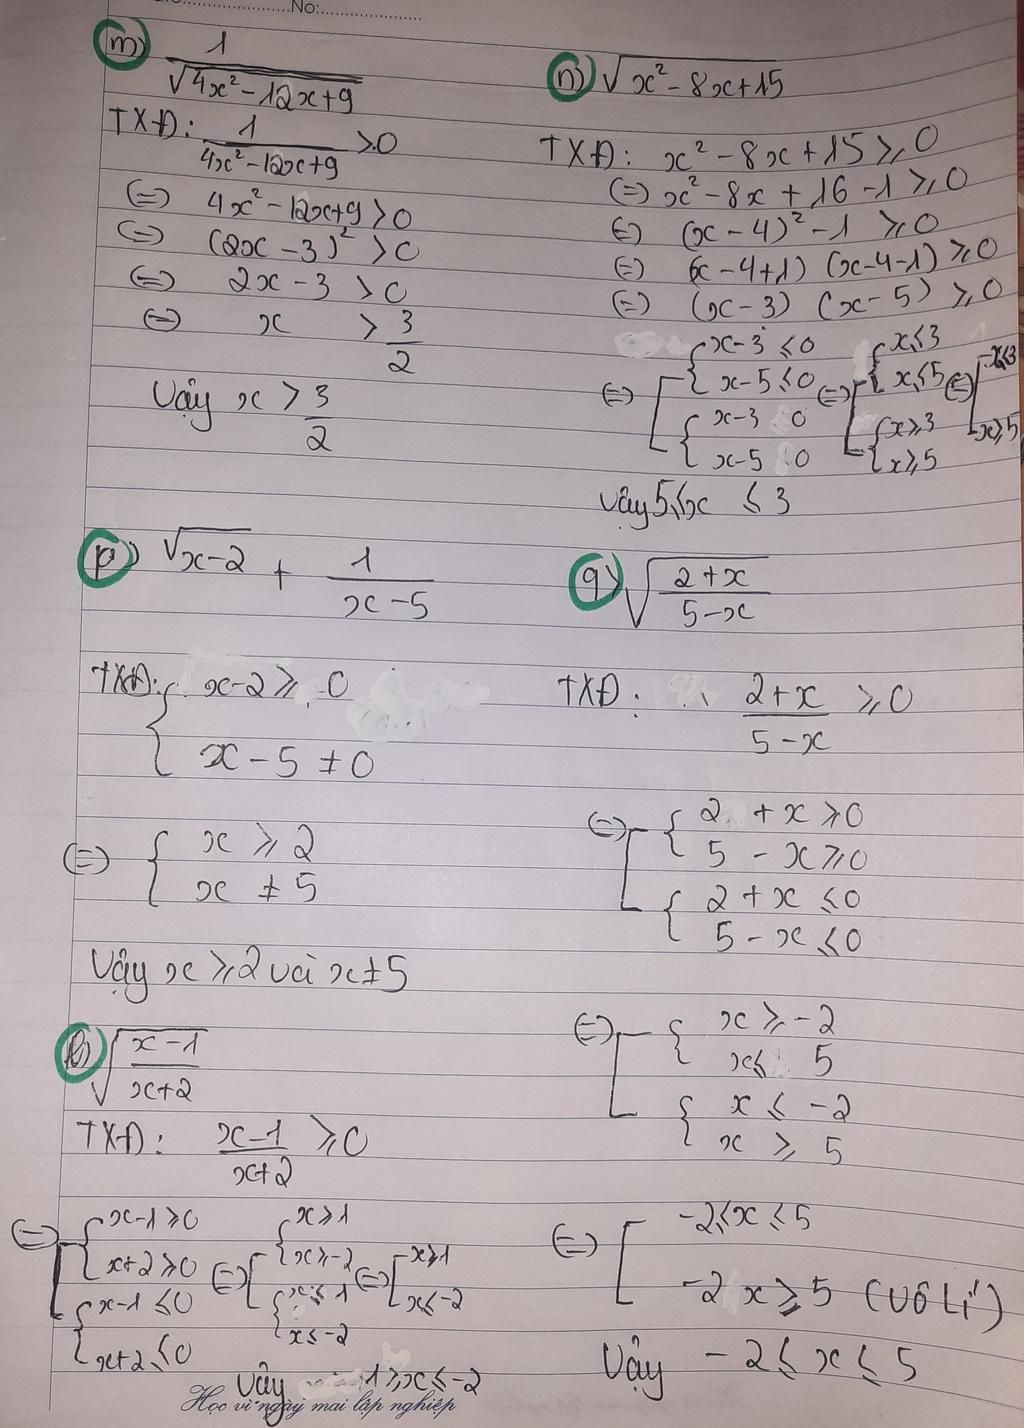 No:
m) 1/√(4x² - 12x + 9)
TXĐ: 1/(4x² - 12x + 9) > 0
(=) 4x² - 12x + 9 > 0
(=) (2x - 3)² > 0
(=) 2x - 3 > 0
(=) x > 3/2
Vậy x > 3/2
n) √(x² - 8x + 15)
TXĐ: x² - 8x + 15 ⩾ 0
(=) x² - 8x + 16 - 1 ⩾ 0
(=) (x - 4)² - 1 ⩾ 0
(=) (x - 4 + 1) (x - 4 - 1) ⩾ 0
(=) (x - 3) (x - 5) ⩾ 0
(=) [ { x - 3 ≤ 0 (=) [ { x ≤ 3 (=) [ x ≤ 3
x - 5 ≤ 0 x ≤ 5
{ x - 3 0 { x ⩾ 3 x ⩾ 5
x - 5 0 x ⩾ 5
Vậy 5 ≤ x ≤ 3
p) √(x - 2) + 1/(x - 5)
TXĐ: { x - 2 ⩾ 0
x - 5 ≠ 0
(=) { x ⩾ 2
x ≠ 5
Vậy x ⩾ 2 và x ≠ 5
q) √((2 + x)/(5 - x))
TXĐ: (2 + x)/(5 - x) ⩾ 0
(=) [ { 2 + x ⩾ 0
5 - x ⩾ 0
{ 2 + x ≤ 0
5 - x ≤ 0
(=) [ { x ⩾ -2
x ≤ 5
{ x ≤ -2
x ⩾ 5
(=) [ -2 ≤ x ≤ 5
-2 x ⩾ 5 (vô lí)
Vậy -2 ≤ x ≤ 5
√((x - 1)/(x + 2))
TXĐ: (x - 1)/(x + 2) ⩾ 0
(=) [ { x - 1 ⩾ 0 (=) [ { x ⩾ 1 (=) [ x ⩾ 1
x + 2 ⩾ 0 x ⩾ -2
{ x - 1 ≤ 0 { x ≤ 1 x ≤ -2
x + 2 ≤ 0 x ≤ -2
Vậy 1 ⩾ x ≤ -2
Học vì ngày mai lập nghiệp